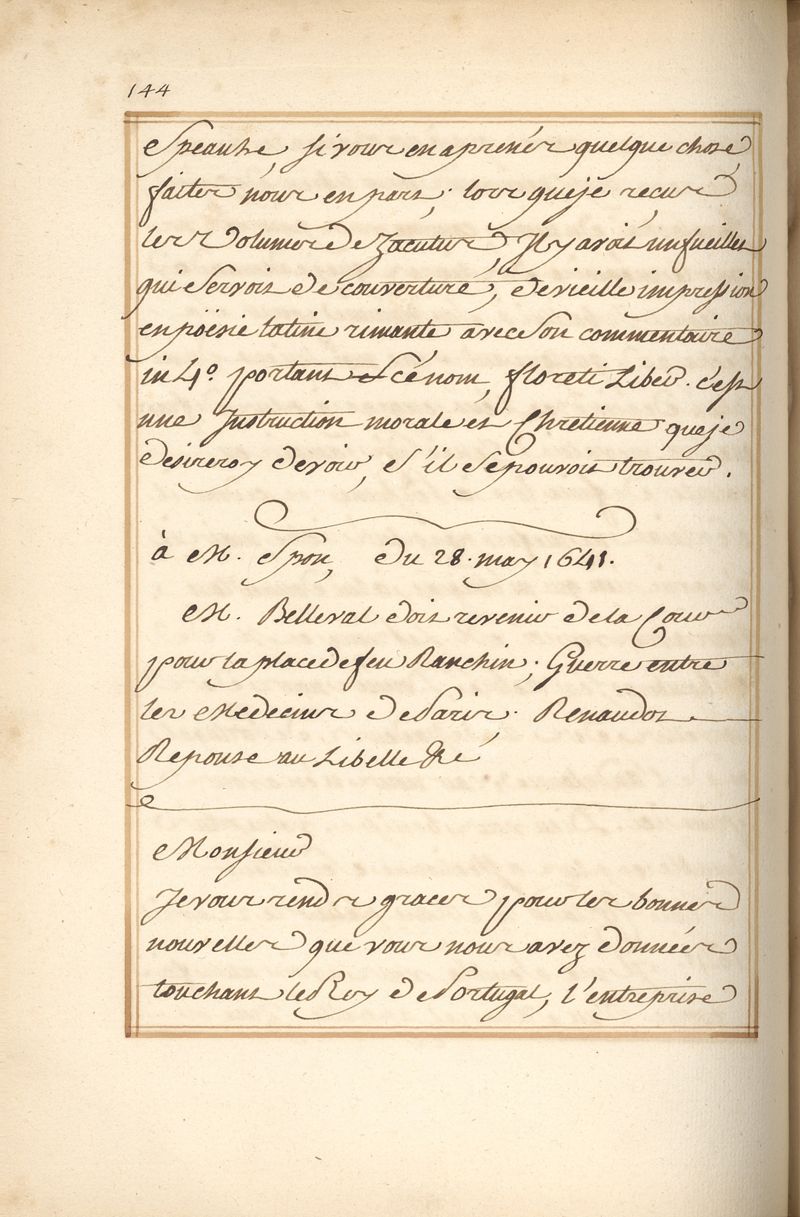 144
Speaube, si vous en aprenés quelque chose,
faites nous en part; lors que je reçus
les 2 volumes de Zacutus, Il y avoit un fueillet
qui servoit de couverture, de vieille impression
en poësie latine rimante avec son commentaire
in 4º. portant ce nom, floreti Liber. c'est
une Instruction morale et Chretienne que je
desireroy de voir, s'il se pouvoit trouver.
à M. Spon, du 28. may 1641.
M. Belleval doit revenir de la Cour
pour la place de feu Ranchin; Guerre entre
les Medecins de Paris. Renaudot
Reponse au Libelle &c
Monsieur
Je vous rends graces pour les bonnes
nouvelles que vous nous avez données
touchant le Roy de Portugal, l'entreprise